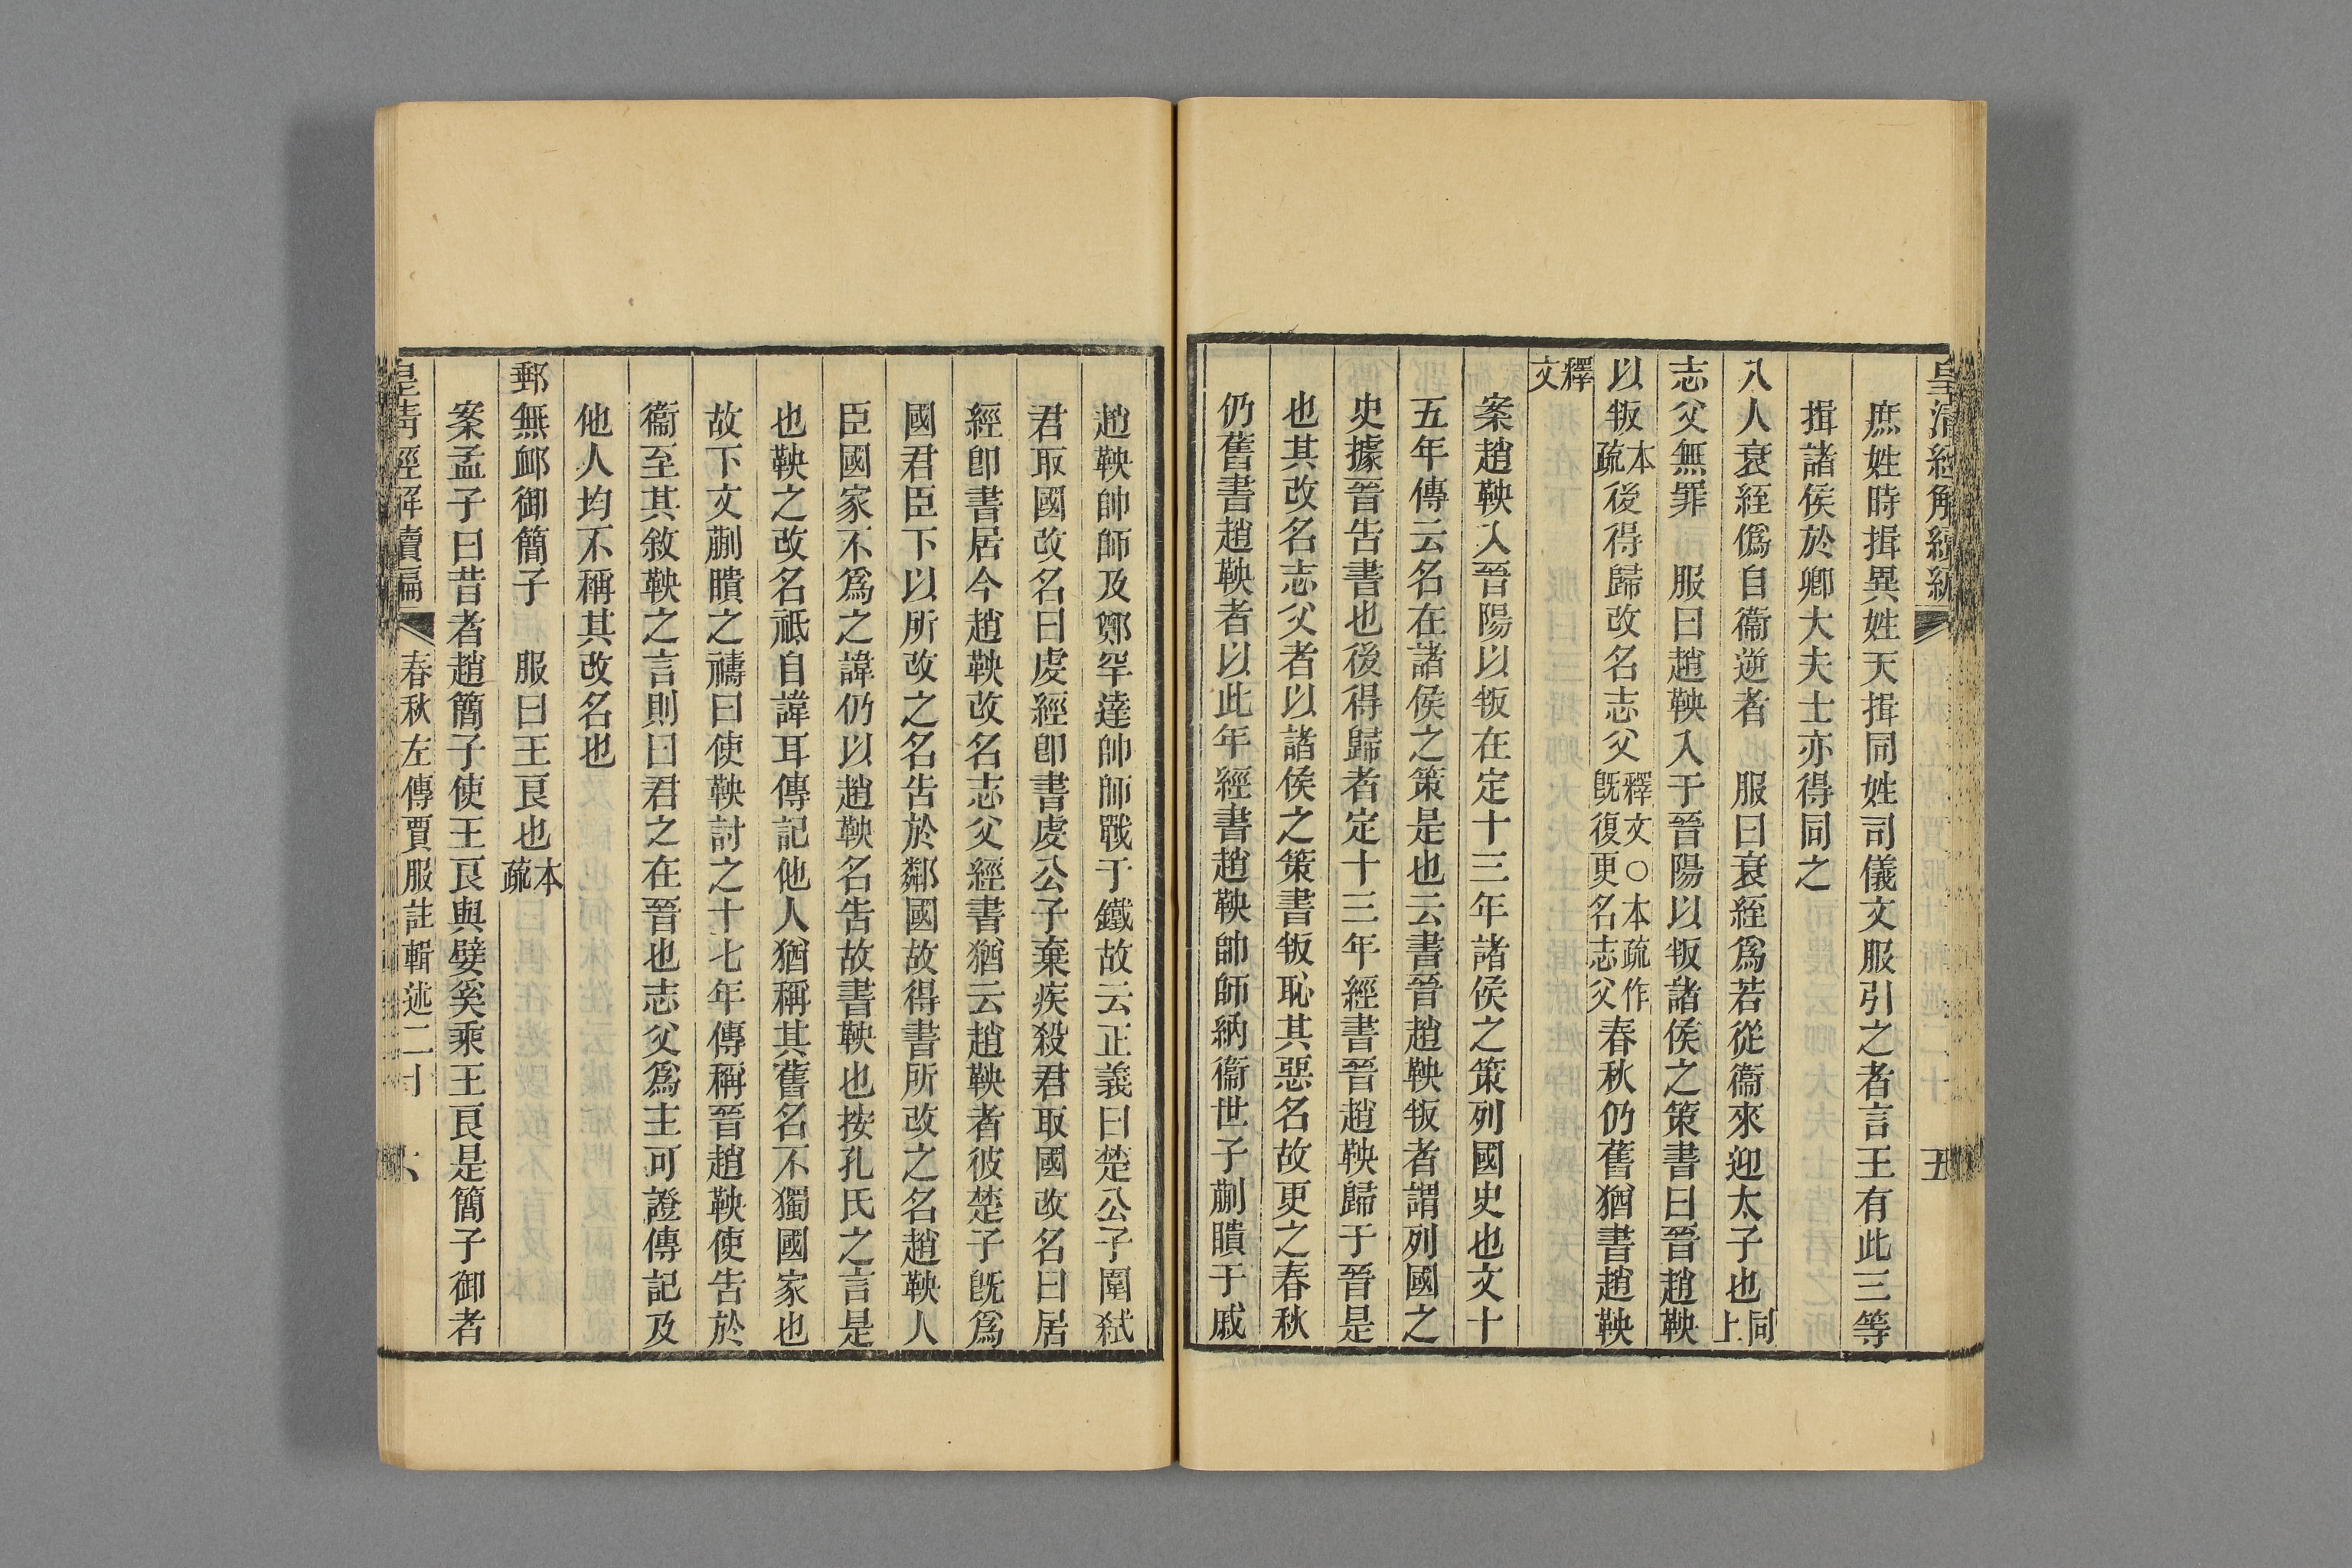 皇清經解續編
五
庶姓時揖異姓天揖同姓司儀文服引之者言王有此三等
揖諸侯於卿大夫士亦得同之
八人衰絰僞自衞逆者　服曰衰絰爲若從衞來迎太子也同上
志父無罪　服曰趙鞅入于晉陽以叛諸侯之策書曰晉趙鞅
以叛本疏後得歸改名志父釋文○本疏作旣復更名志父春秋仍舊猶書趙鞅
釋文
案趙鞅入晉陽以叛在定十三年諸侯之策列國史也文十
五年傳云名在諸侯之策是也云書晉趙鞅叛者謂列國之
史據晉告書也後得歸者定十三年經書晉趙鞅歸于晉是
也其改名志父者以諸侯之策書叛恥其惡名故更之春秋
仍舊書趙鞅者以此年經書趙鞅帥師納衞世子蒯聵于戚
趙鞅帥師及鄭罕達帥師戰于鐵故云正義曰楚公子圍弒
君取國改名曰虔經卽書虔公子棄疾殺君取國改名曰居
經卽書居今趙鞅改名志父經書猶云趙鞅者彼楚子旣爲
國君臣下以所改之名告於鄰國故得書所改之名趙鞅人
臣國家不爲之諱仍以趙鞅名告故書鞅也按孔氏之言是
也鞅之改名祗自諱耳傳記他人猶稱其舊名不獨國家也
故下文蒯聵之禱曰使鞅討之十七年傳稱晉趙鞅使告於
衞至其敘鞅之言則曰君之在晉也志父爲主可證傳記及
他人均不稱其改名也
郵無卹御簡子　服曰王良也本疏
案孟子曰昔者趙簡子使王良與嬖奚乘王良是簡子御者
皇清經解續編
春秋左傳賈服註輯述二十
六